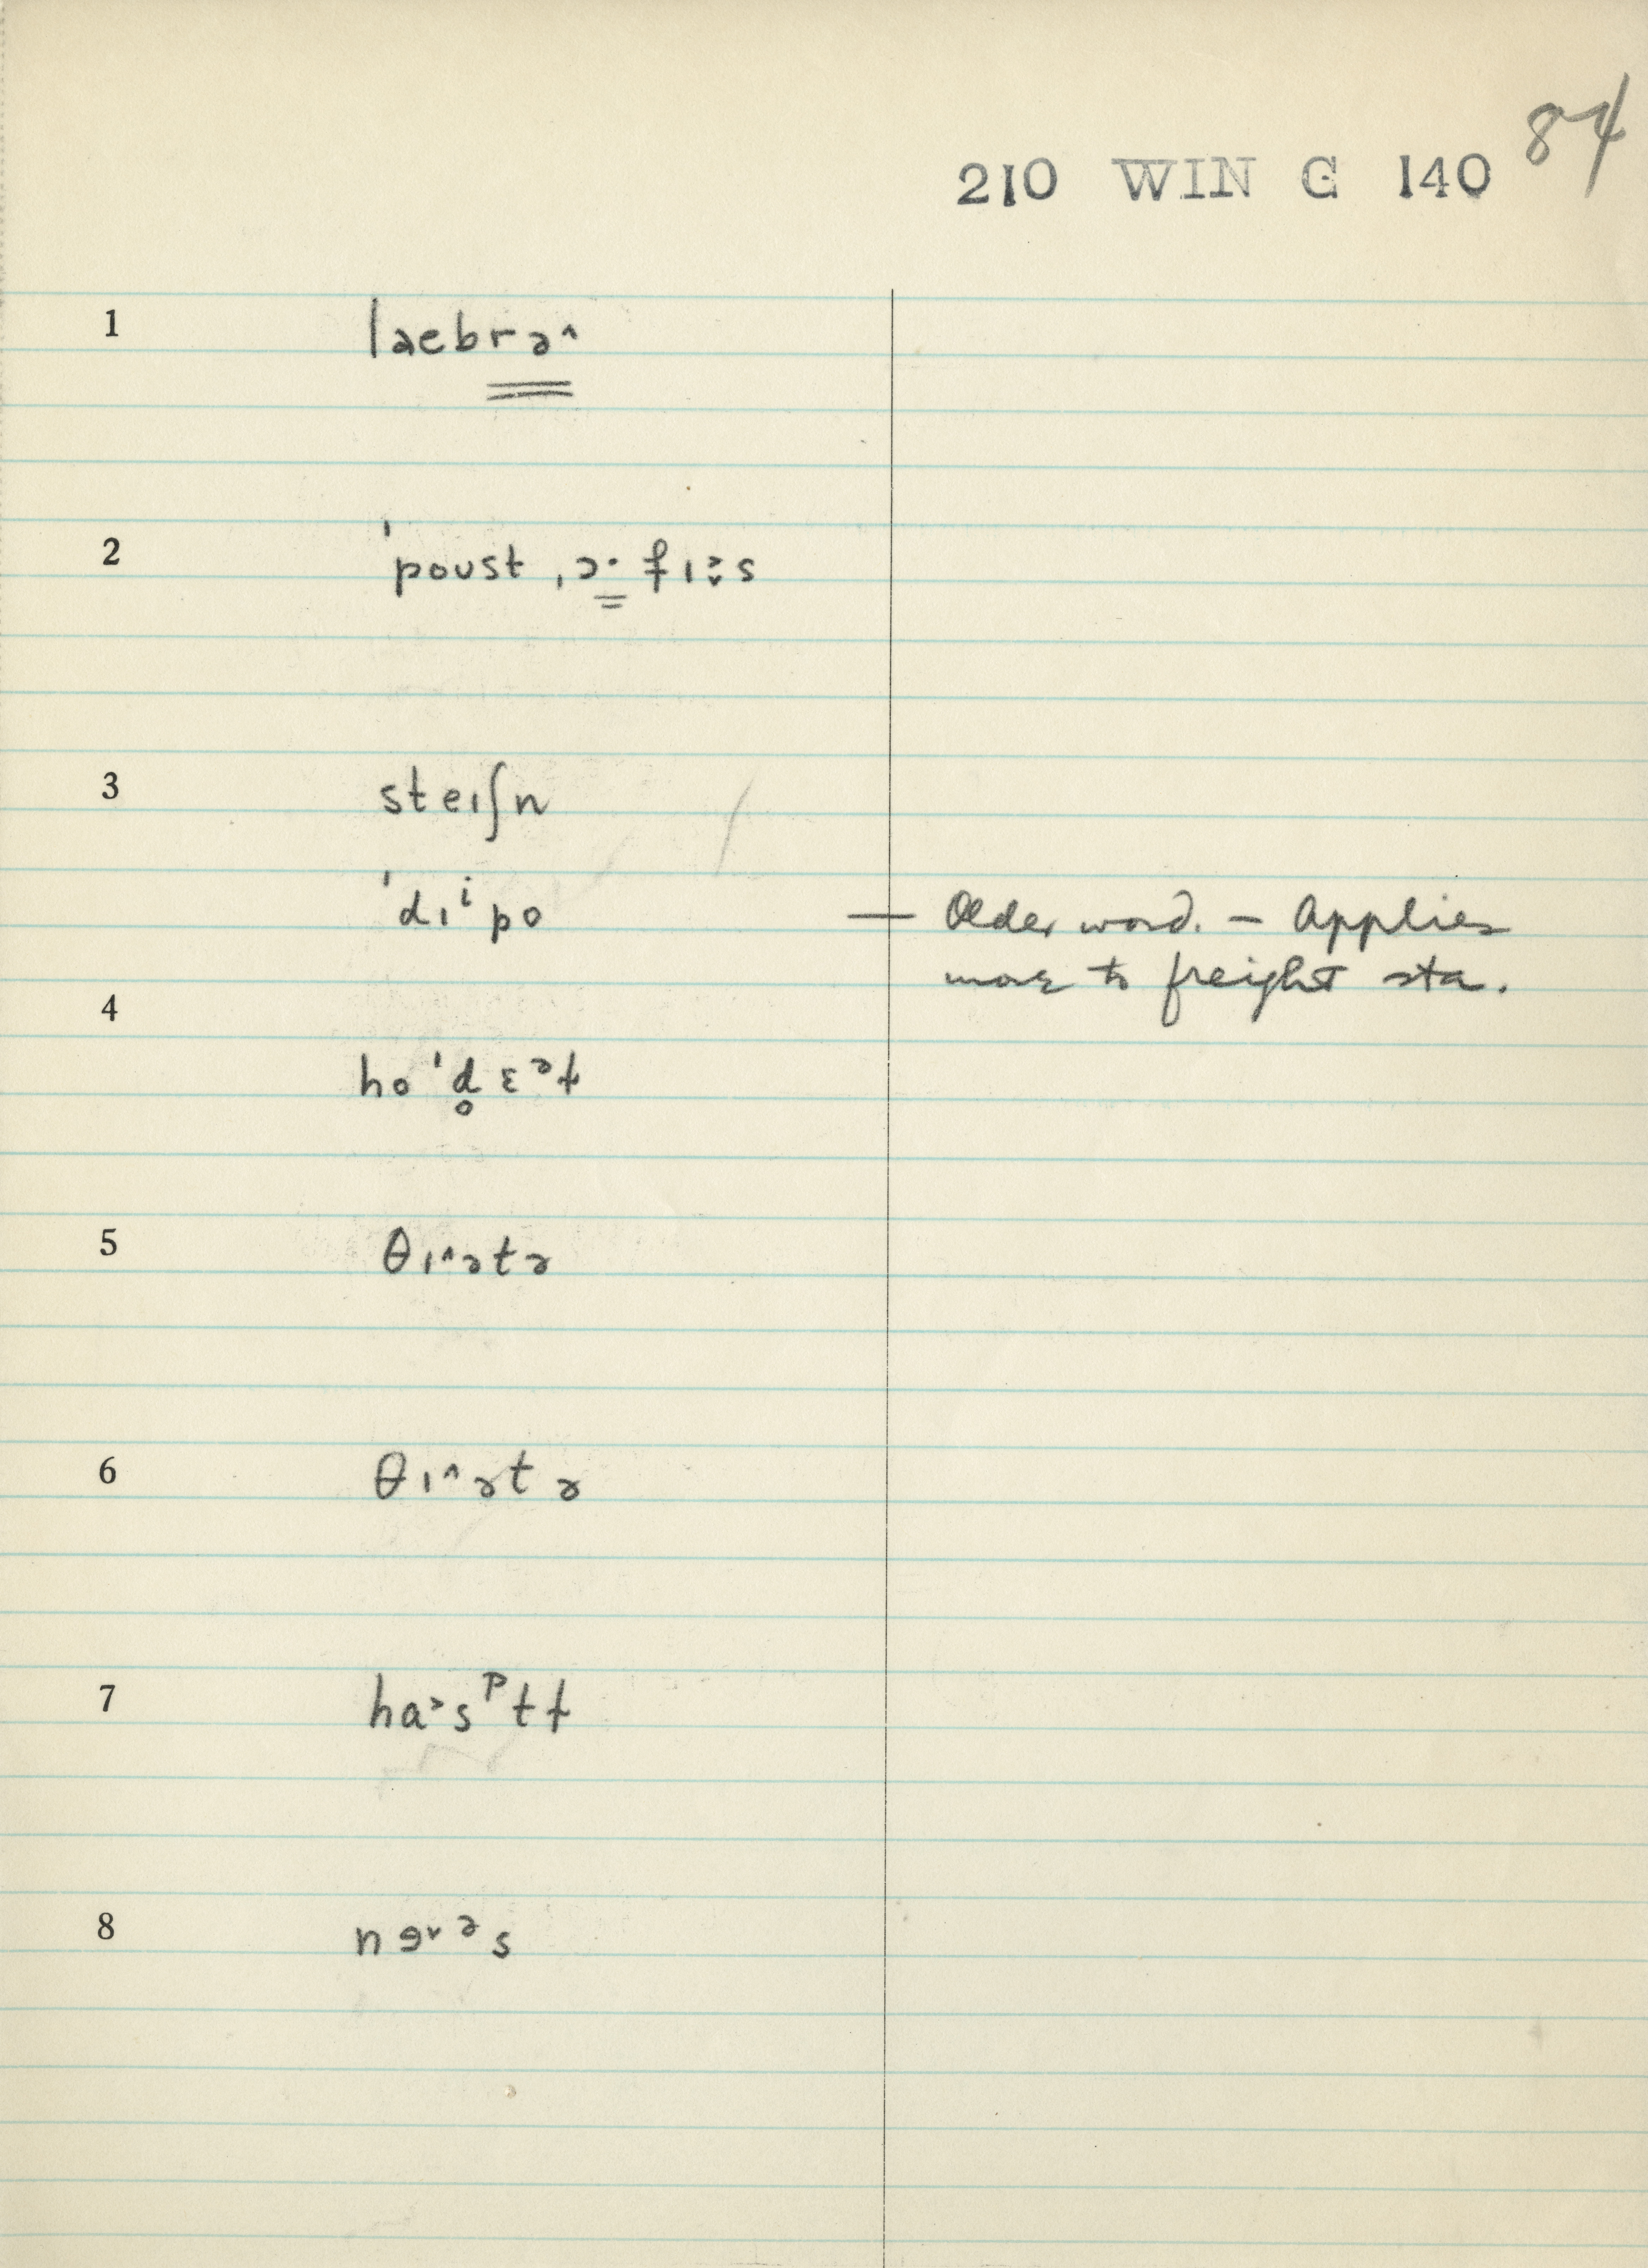 84
210 WIN G 140
1 laebrə^
2 ˈpoʊst ˌɔ·fɪ˃̬s
3 steɪʃn
ˈdɪⁱpo — Older word. – Applies
more to freight sta.
4
hoˈd̥ɛᵊɫ
5 θɪ^ətə
6 θɪ^ətə
7 ha˃sᵖtɫ
8 nɘ˅ᵊs